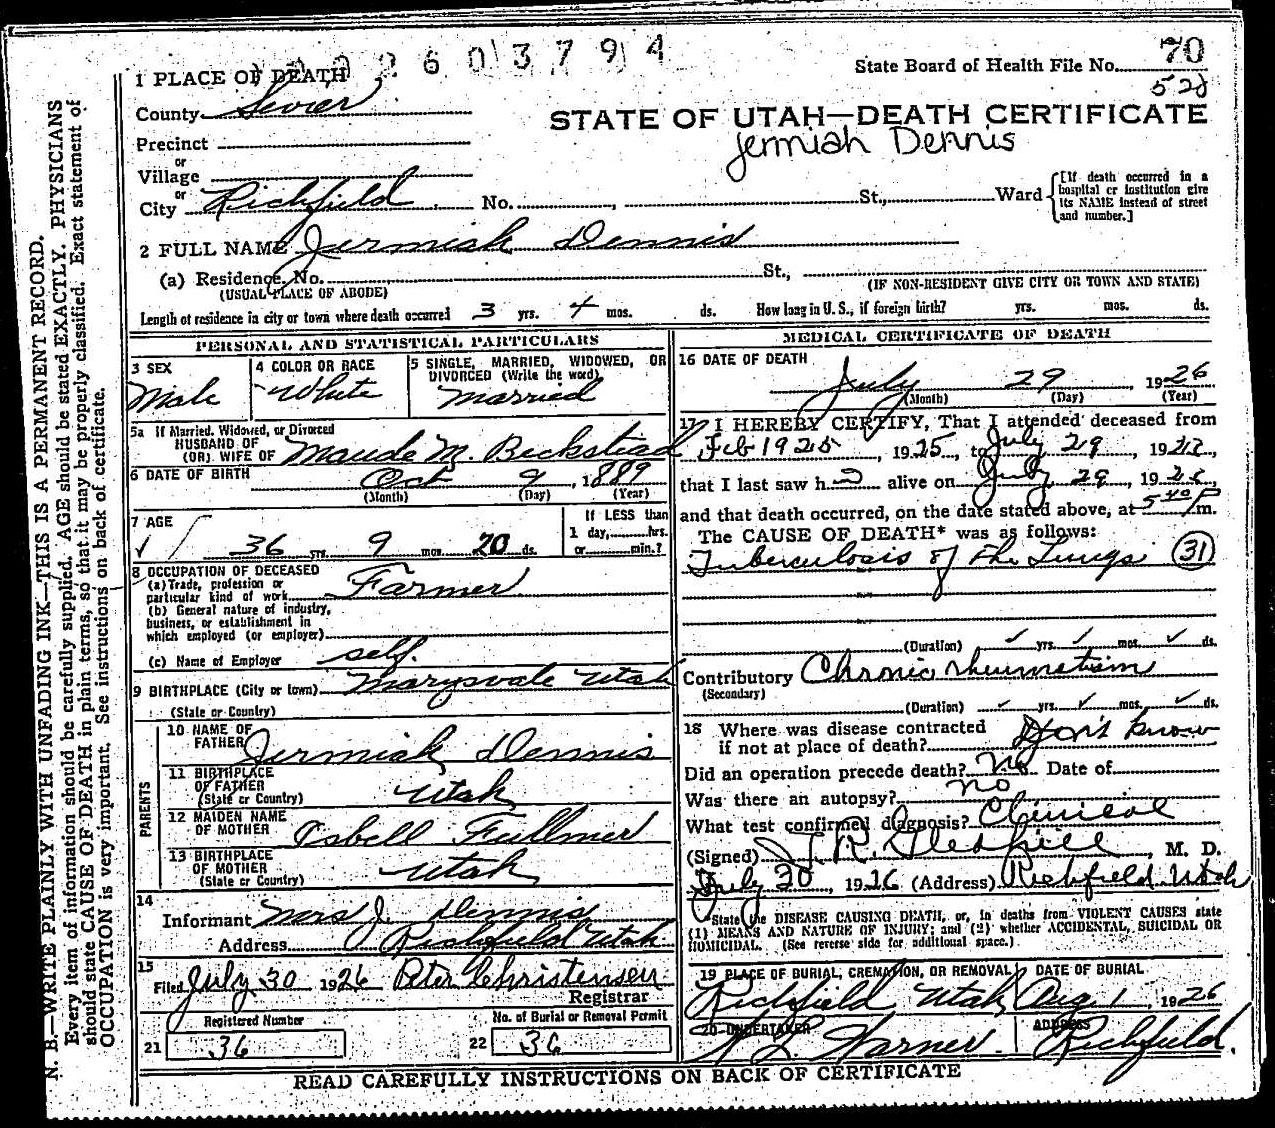 2 6 0 3 7 9 4
70
State Board of Health File No.
528
1 PLACE OF DEATH
County Sevier
STATE OF UTAH—DEATH CERTIFICATE
Jermiah Dennis
Precinct
or
Village
or
City Richfield No. , St., Ward
[If death occurred in a
hospital or institution give
its NAME instead of street
and number.]
2 FULL NAME Jermiah Dennis
(a) Residence, No. St.,
(USUAL PLACE OF ABODE) (IF NON-RESIDENT GIVE CITY OR TOWN AND STATE)
Length of residence in city or town where death occurred 3 yrs. 4 mos. ds. How long in U. S., if foreign birth? yrs. mos. ds.
PERSONAL AND STATISTICAL PARTICULARS
3 SEX Male
4 COLOR OR RACE White
5 SINGLE, MARRIED, WIDOWED, OR
DIVORCED (Write the word)
Married
5a If Married, Widowed, or Divorced
HUSBAND OF
(OR) WIFE OF Maude M. Beckstead
6 DATE OF BIRTH Oct 9, 1889
(Month) (Day) (Year)
7 AGE 36 yrs. 9 mos. 20 ds.
If LESS than
1 day, hrs.
or min.?
8 OCCUPATION OF DECEASED
(a) Trade, profession or
particular kind of work Farmer
(b) General nature of industry,
business, or establishment in
which employed (or employer)
(c) Name of Employer self.
9 BIRTHPLACE (City or town) Marysvale Utah
(State or Country)
PARENTS
10 NAME OF
FATHER Jermiah Dennis
11 BIRTHPLACE
OF FATHER
(State or Country) Utah
12 MAIDEN NAME
OF MOTHER Isbell Fullmer
13 BIRTHPLACE
OF MOTHER
(State or Country) Utah
14
Informant Mrs J. Dennis
Address Richfield Utah
15
Filed July 30 1926 Peter Christensen
Registrar
Registered Number
No. of Burial or Removal Permit
21 36 22 36
MEDICAL CERTIFICATE OF DEATH
16 DATE OF DEATH
July 29, 1926
(Month) (Day) (Year)
17 I HEREBY CERTIFY, That I attended deceased from
Feb 1925, 1925, to July 29, 1926,
that I last saw h alive on July 29, 1926
and that death occurred, on the date stated above, at 5 40 P m.
The CAUSE OF DEATH* was as follows:
Tuberculosis of The Lungs 31
(Duration) yrs. mos. ds.
Contributory Chronic rheumatism
(Secondary)
(Duration) yrs. mos. ds.
18 Where was disease contracted
if not at place of death? Don't know
Did an operation precede death? No Date of
Was there an autopsy? no
What test confirmed diagnosis? Clinical
(Signed) J. R. Gledhill, M. D.
July 30, 1926 (Address) Richfield Utah
State the DISEASE CAUSING DEATH, or, in deaths from VIOLENT CAUSES state
(1) MEANS AND NATURE OF INJURY; and (2) whether ACCIDENTAL, SUICIDAL OR
HOMICIDAL. (See reverse side for additional space.)
19 PLACE OF BURIAL, CREMATION, OR REMOVAL DATE OF BURIAL
Richfield Utah Aug 1 1926
20 UNDERTAKER ADDRESS
L Warner. Richfield.
READ CAREFULLY INSTRUCTIONS ON BACK OF CERTIFICATE
N. B.—WRITE PLAINLY WITH UNFADING INK—THIS IS A PERMANENT RECORD.
Every item of information should be carefully supplied. AGE should be stated EXACTLY. PHYSICIANS
should state CAUSE OF DEATH in plain terms, so that it may be properly classified. Exact statement of
OCCUPATION is very important. See instructions on back of certificate.